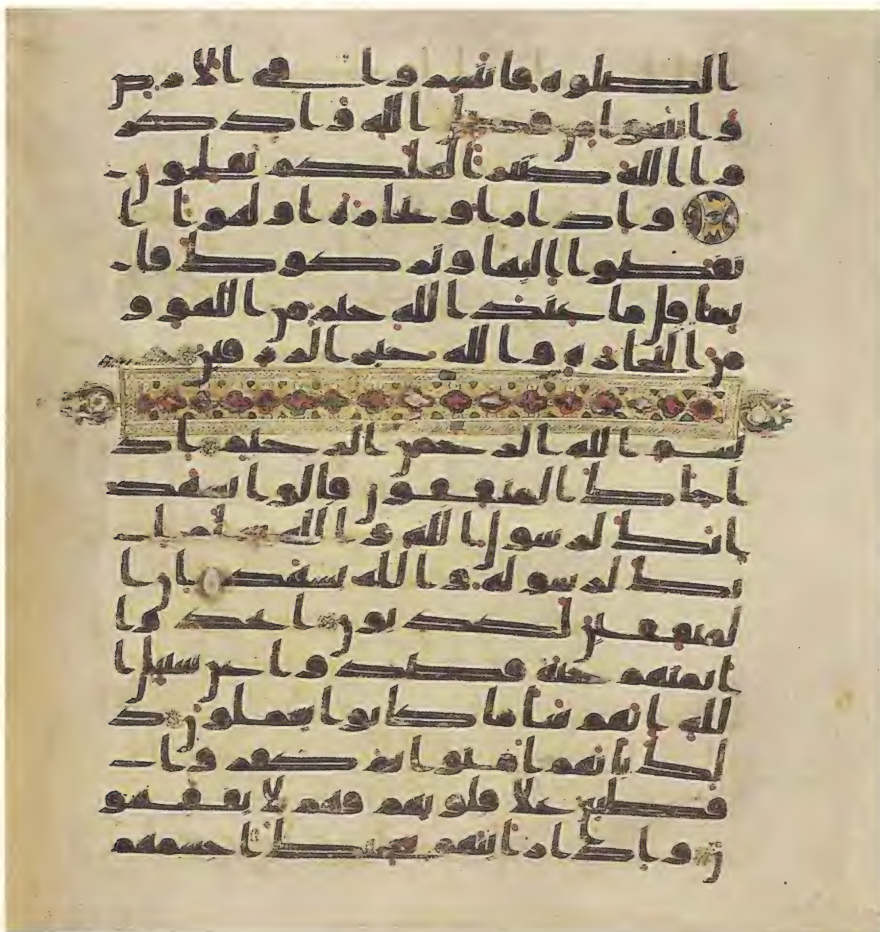 الصلوه فانتشروا في الارض
وابتغوا من فضل الله واذكر
وا الله كثيرا لعلكم تفلحون
واذا راوا تجارة او لهوا ا
نفضوا اليها وتركوك قا
يما قل ما عند الله خير من اللهو و
من التجارة والله خير الرزقين
بسم الله الرحمن الرحيم اذ
ا جاك المنفقون قالوا نشهد
انك لرسول الله والله يعلم ا
نك لرسوله والله يشهد ان ا
لمنفقين لكذبون اتخذوا
ايمنهم جنة فصدوا عن سبيل ا
لله انهم سا ما كانوا يعملون ذ
لك بانهم امنوا ثم كفروا
فطبع علا قلوبهم فهم لا يفقهو
ن واذا رايتهم تعجبك اجسمهم